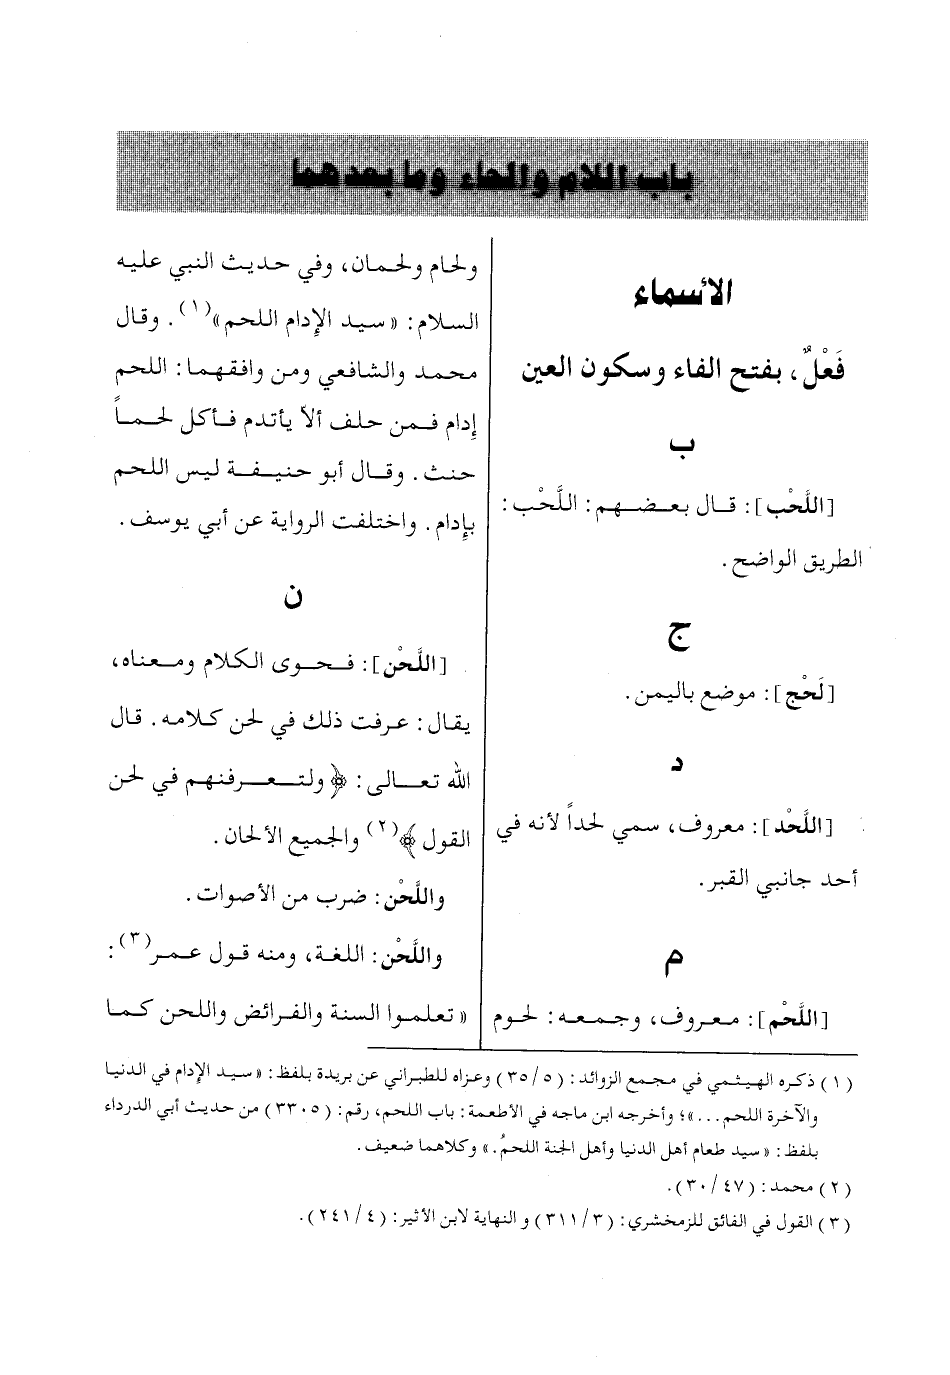 باب اللام والحاء وما بعدهما
الأسماء
فَعْلٌ، بفتح الفاء وسكون العين
ب
[اللَّحْب]: قال بعضهم: اللَّحْب:
الطريق الواضح.
ج
[لَحْج]: موضع باليمن.
د
[اللَّحْد]: معروف، سمي لحداً لأنه في
أحد جانبي القبر.
م
[اللَّحْم]: معروف، وجمعه: لحوم
ولحام ولحمان، وفي حديث النبي عليه
السلام: «سيد الإدام اللحم»(١). وقال
محمد والشافعي ومن وافقهما: اللحم
إدام فمن حلف ألاّ يأتدم فأكل لحماً
حنث. وقال أبو حنيفة ليس اللحم
بإدام. واختلفت الرواية عن أبي يوسف.
ن
[اللَّحْن]: فحوى الكلام ومعناه،
يقال: عرفت ذلك في لحن كلامه. قال
الله تعالى: ﴿ولتعرفنهم في لحن
القول﴾(٢) والجميع الألحان.
واللَّحْن: ضرب من الأصوات.
واللَّحْن: اللغة، ومنه قول عمر(٣):
«تعلموا السنة والفرائض واللحن كما
(١) ذكره الهيثمي في مجمع الزوائد: (٣٥/٥) وعزاه للطبراني عن بريدة بلفظ: «سيد الإدام في الدنيا
والآخرة اللحم...»؛ وأخرجه ابن ماجه في الأطعمة: باب اللحم، رقم: (٣٣٠٥) من حديث أبي الدرداء
بلفظ: «سيد طعام أهل الدنيا وأهل الجنة اللحمُ.» وكلاهما ضعيف.
(٢) محمد: (٣٠/٤٧).
(٣) القول في الفائق للزمخشري: (٣١١/٣) و النهاية لابن الأثير: (٢٤١/٤).